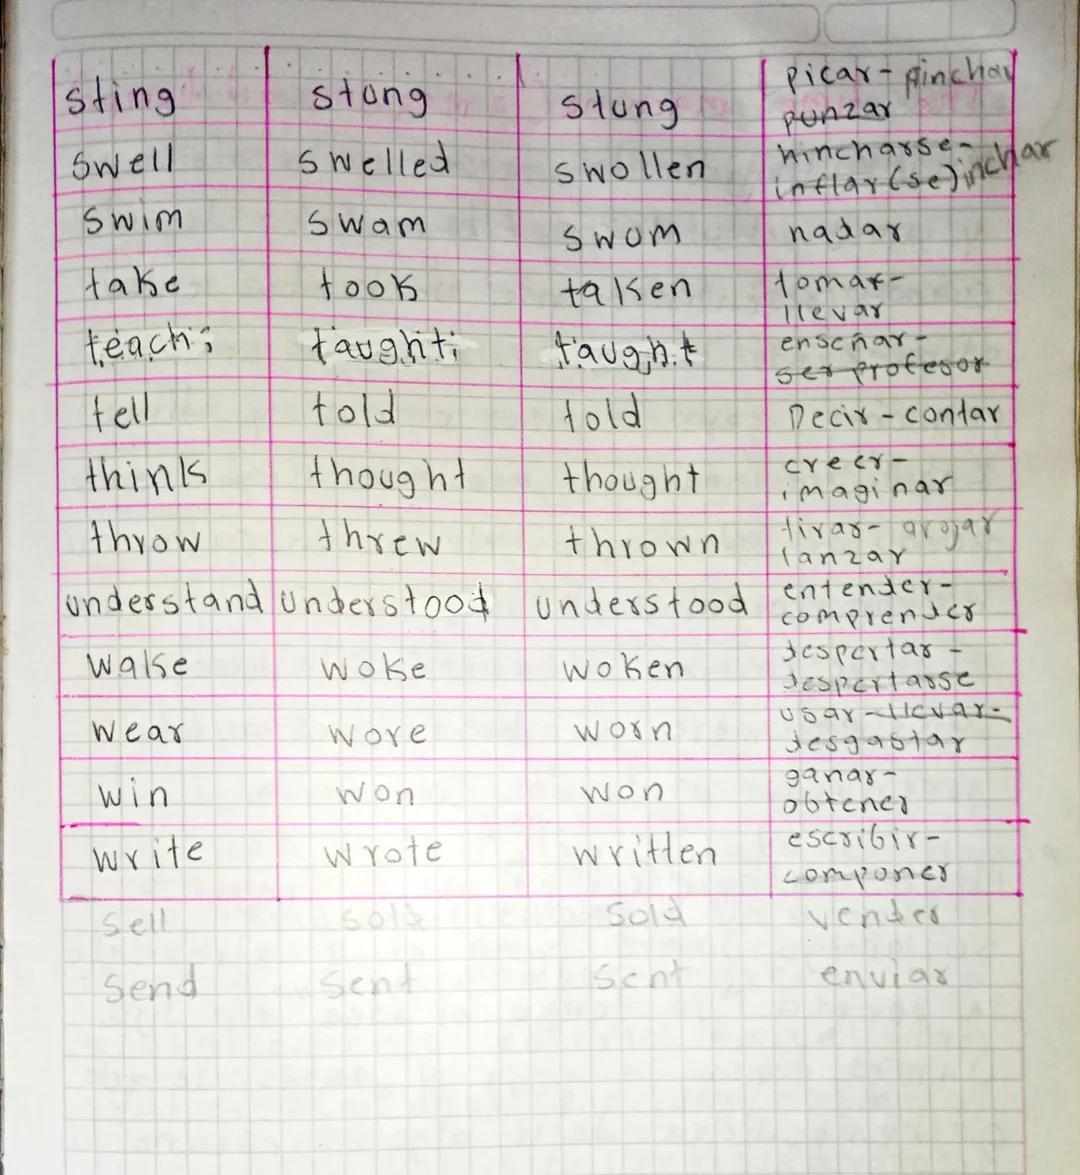 sting stung stung picar- pinchar
punzar
swell swelled swollen hincharse-
inflar(se) inchar
swim swam swum nadar
take took taken tomar-
llevar
teach; taught; taught enseñar-
ser profesor
tell told told Decir - contar
think thought thought creer-
imaginar
throw threw thrown tirar- arojar
lanzar
understand understood understood entender-
comprender
wake woke woken despertar -
despertarse
wear wore worn usar-llevar-
desgastar
win won won ganar-
obtener
write wrote written escribir-
componer
Sell sold Sold vender
Send Sent Sent enviar